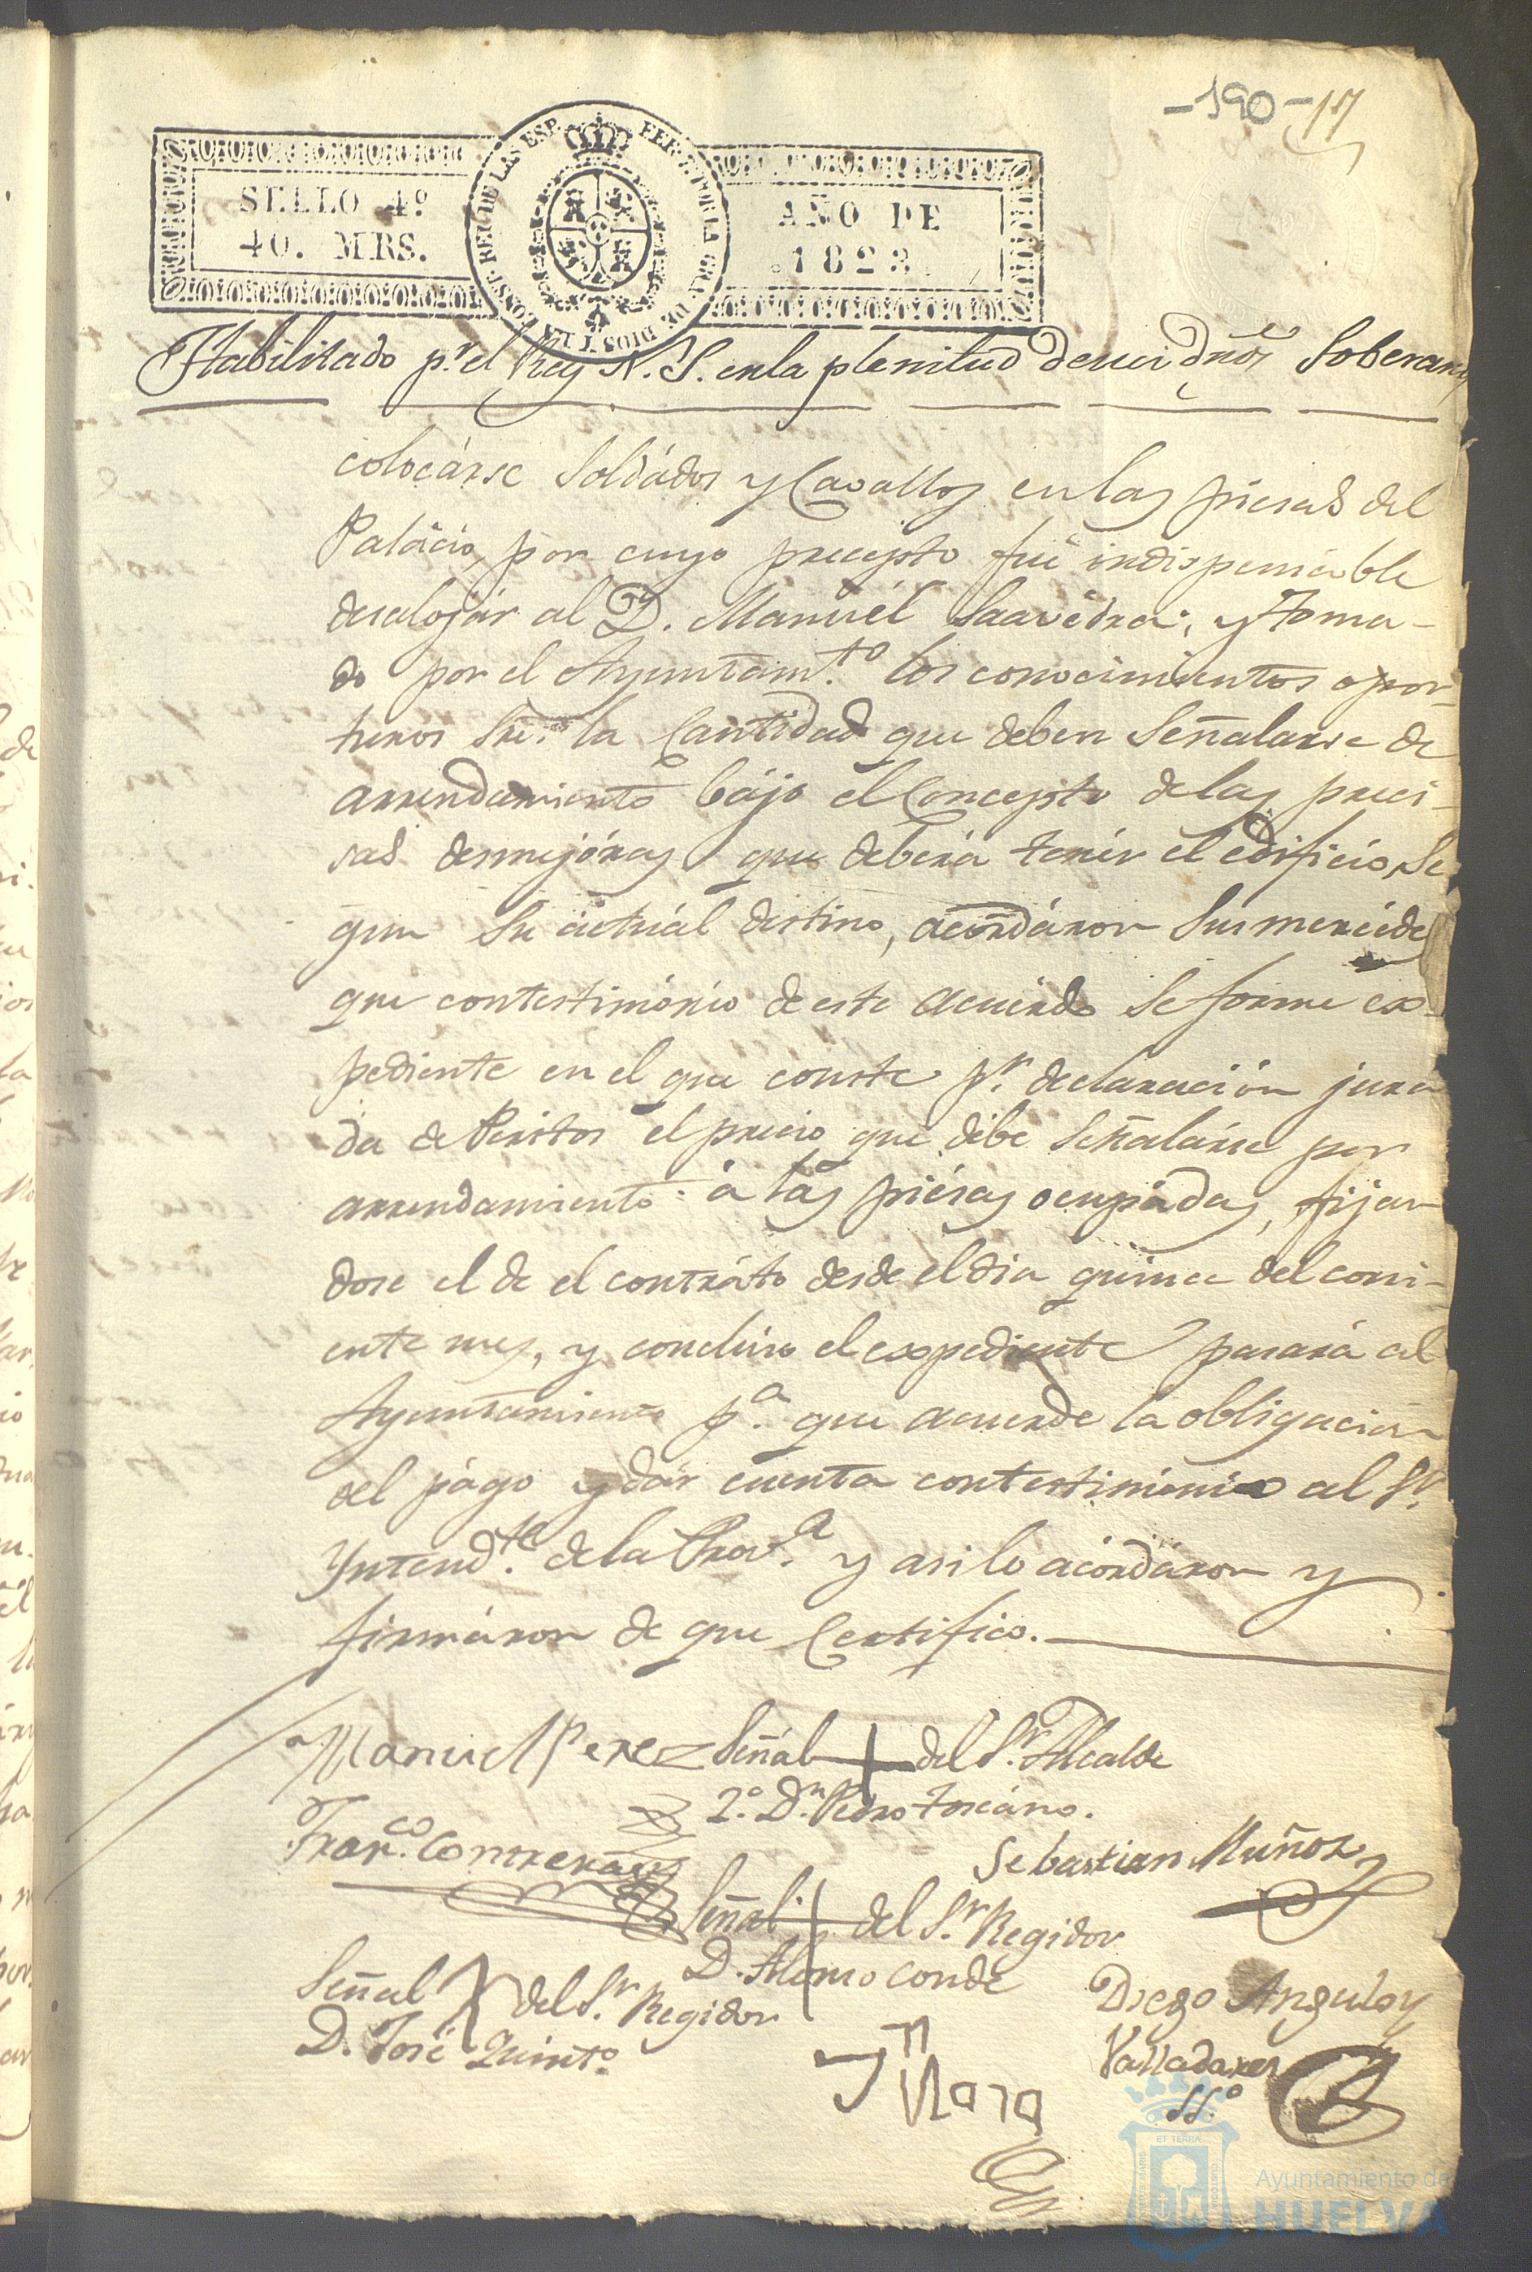 -190- 17
SELLO 4º
40. MRS.
FER. 7. POR LA GRA. DE DIOS Y LA CONST. REY DE LAS ESP.
AÑO DE
1823.
Habilitado pr. el Rey N. S. en la plenitud de sus dros Soberan
colocárse Soldádos y Cavallos en las piesas del
Palácio, por cuyo precepto fué indispensable
desalojár al D. Manuél Saavédra; y Toma-
do por el Ayuntam.to los conocimientos opor-
tunos sre. la Cantidad que deben Señalarse de
arrendamiento bájo el Concepto de las preci-
sas desmejóras que deberá tenér el edificio, Se
gun su actuál destino, acordáron Sus mercéde
que con testimónio de este acuerdo Se forme ex-
pediente en el que conste pr. declaración jura
da de Peritos el precio que débe Señalárse por
arrendamiento á las piésas ocupádas, fijan
dose el de el contráto desde el dia quince del corri-
ente mes, y conclúso el expediente pasará al
Ayuntamiento p.a que acuerde la obligación
del págo y dár cuenta con testimónio al Sr.
Yntend.te de la Prov.a y asi lo acordáron y
firmáron de que Certifico.
Manuel Perez Señál + del Sr. Alcalde
2.º Dn. Pedro Toscáno.
Fran.co Contreras
Sebastian Muñoz
Señal + del Sr. Regidor
D. Alonso Conde
Señal + del Sr. Regidor
D. José Quint.º
Diego Angulo y
Valladares
SS.º
ET TERRÆ
Ayuntamiento de
HUELVA